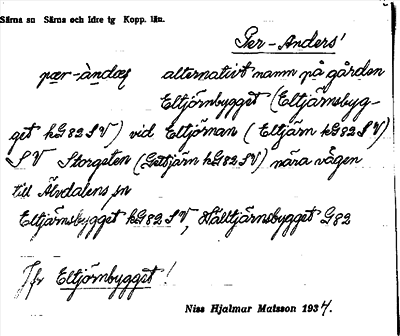 Särna sn Särna och Idre tg Kopp. län.
Per-Anders'
pær-àndæs alternativt namn på gården
Eltjörnbygget (Eltjärnsbyg-
get kG82SV) vid Eltjörnan (Eltjärn kG82SV)
SV Storgsten (Getsjärn kG82SV) nära vägen
till Älvdalens sn
Eltjärnsbygget kG82SV, Hålltjärnsbygget G82
Jfr Eltjörnbygget!
Niss Hjalmar Matsson 1934.